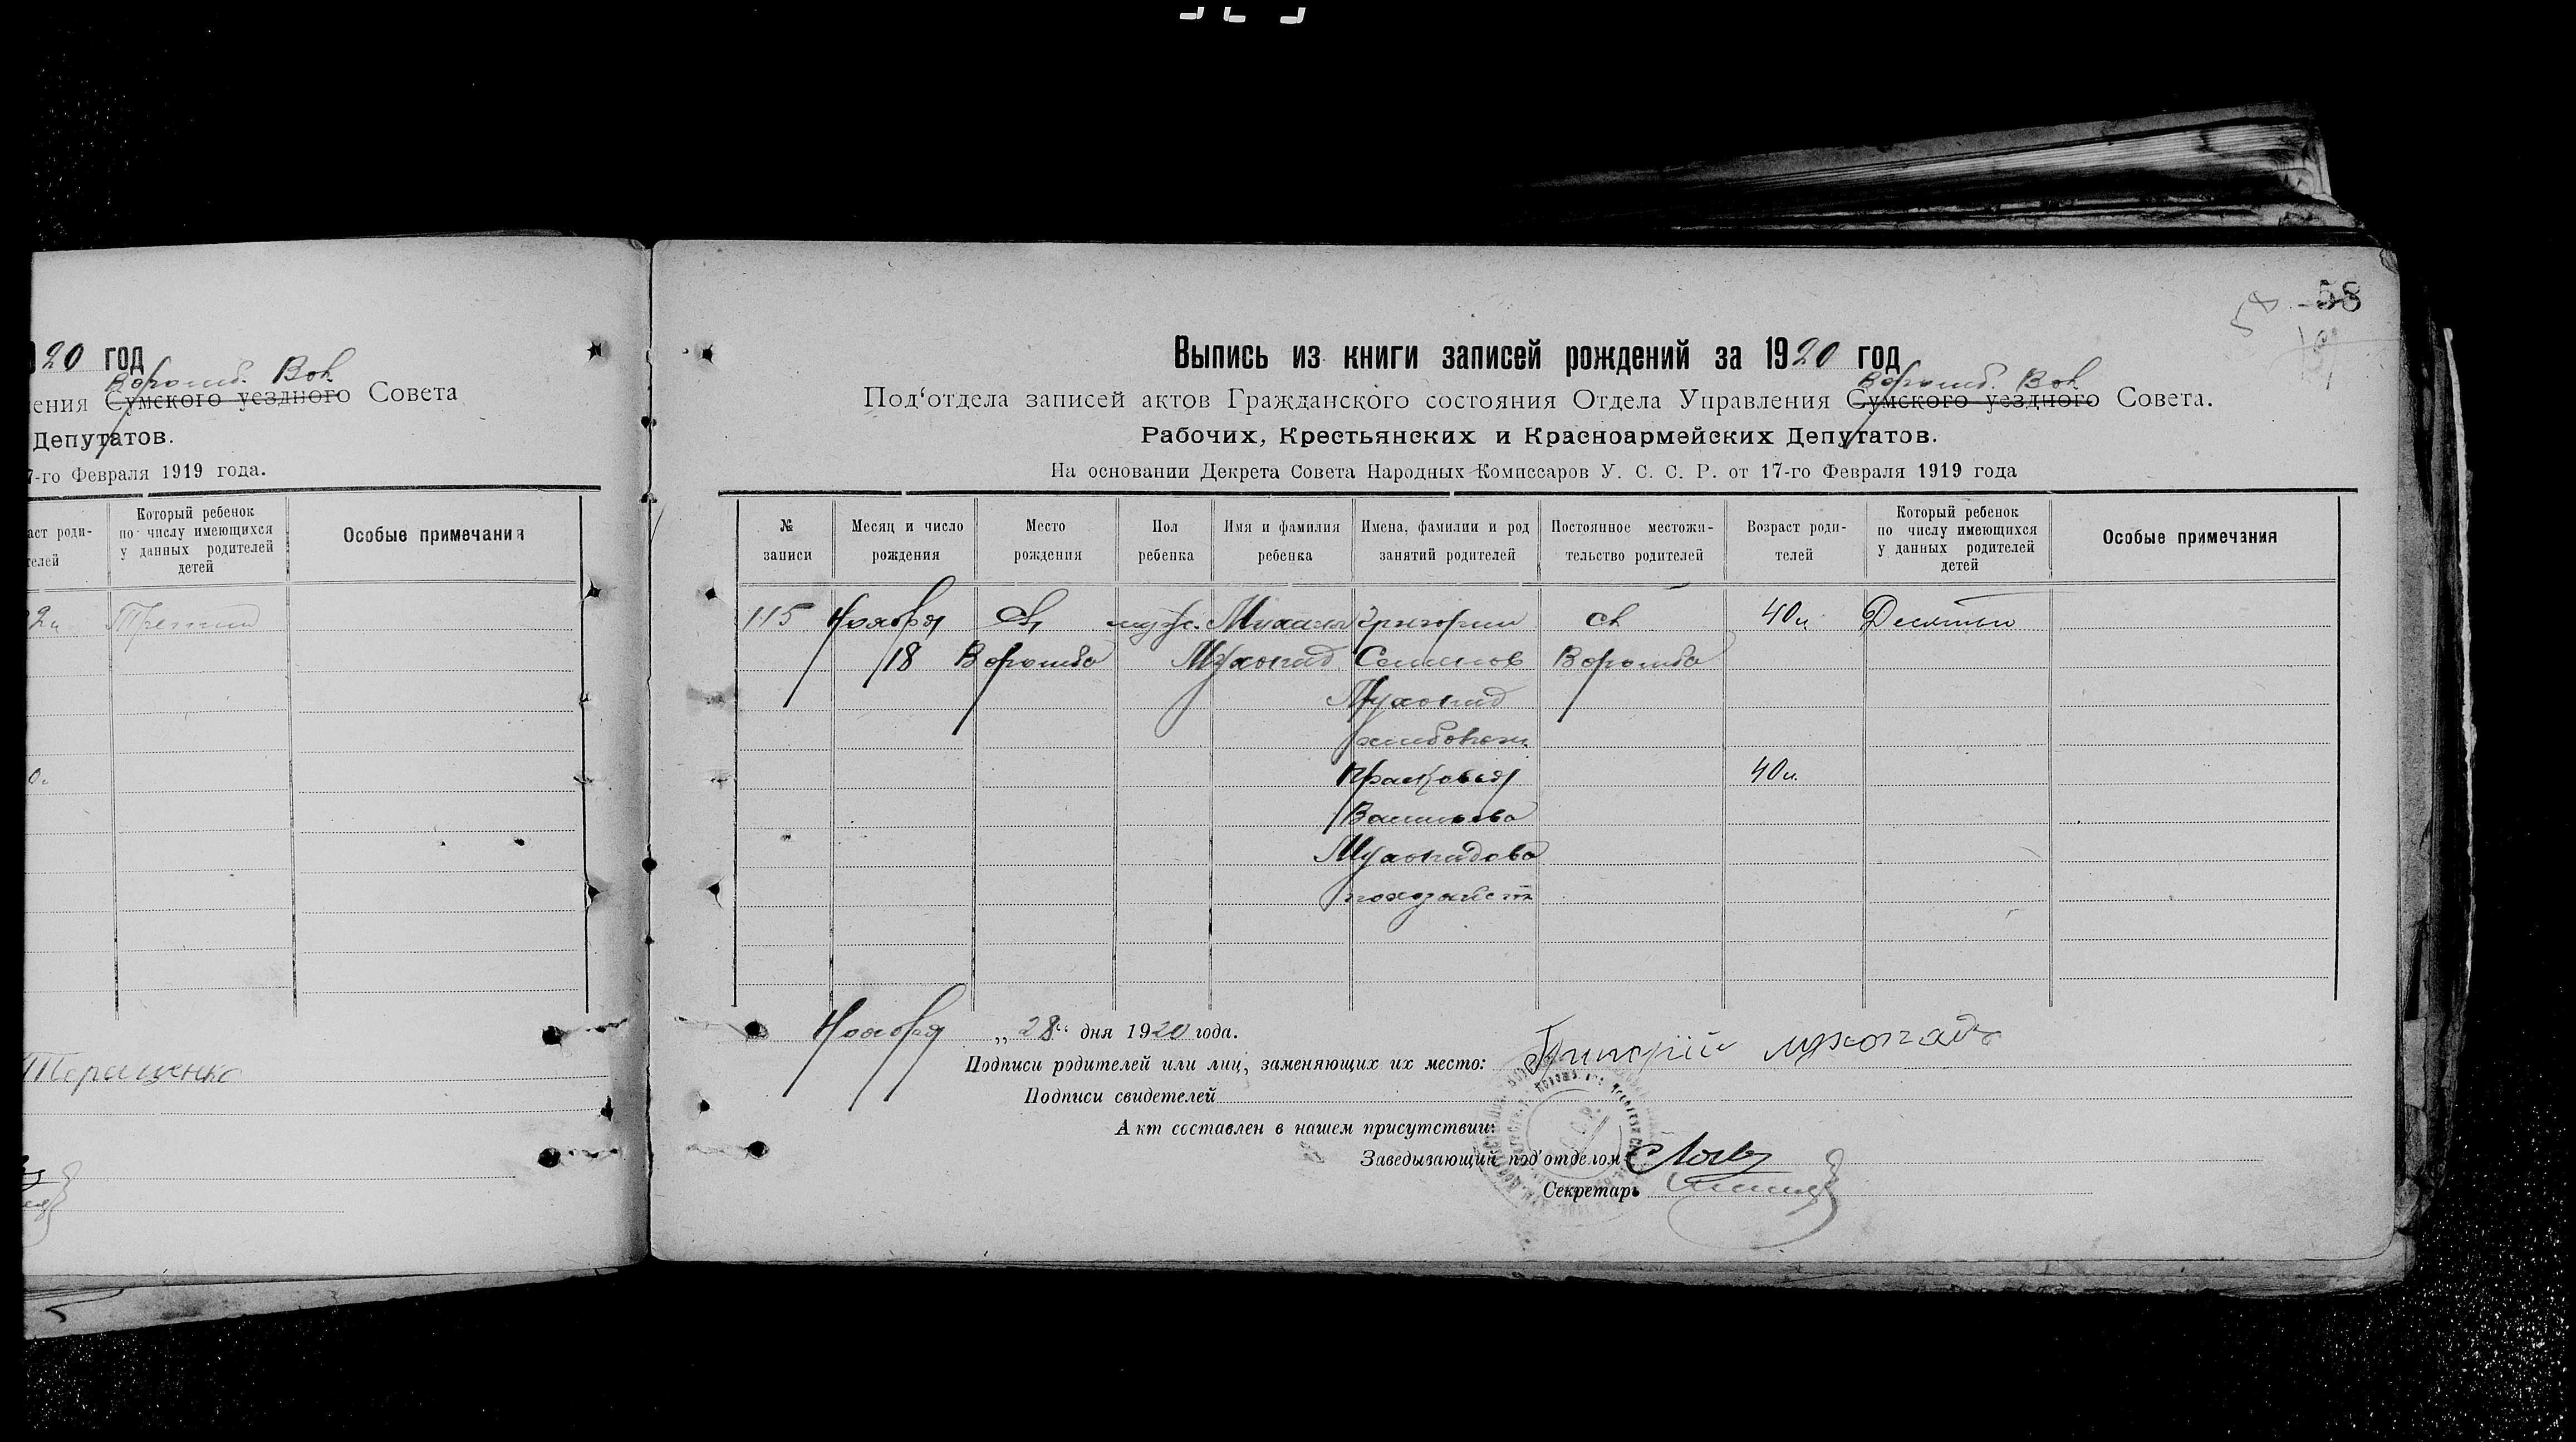 20 год
Ворожб. Вол.
ения Сумского уездного Совета
Депутатов.
7-го Февраля 1919 года.
аст роди-
телей
Который ребенок
по числу имеющихся
у данных родителей
детей
Особые примечания
Третий
Терещенко
58
58
Выпись из книги записей рождений за 1920 год
Ворожб. Вол.
Под‘отдела записей актов Гражданского состояния Отдела Управления Сумского уездного Совета.
Рабочих, Крестьянских и Красноармейских Депутатов.
На основании Декрета Совета Народных Комиссаров У. С. С. Р. от 17-го Февраля 1919 года
№ записи
Месяц и число рождения
Место рождения
Пол ребенка
Имя и фамилия ребенка
Имена, фамилии и род занятий родителей
Постоянное местожи-тельство родителей
Возраст роди-телей
Который ребенок по числу имеющихся у данных родителей детей
Особые примечания
115 Ноября сл. муж. Михаил Григорий сл 40 л. Десятый
18 Ворожба Мухопад Семенов Ворожба
Мухопад
хлебопаш.
Прасковья 40 л.
Васильева
Мухопадова
домохозяйст
Ноября „28“ дня 1920 года.
Подписи родителей или лиц, заменяющих их место: Григорій мухопад
Подписи свидетелей
Акт составлен в нашем присутствии:
Заведывающий под‘отделом
Секретарь